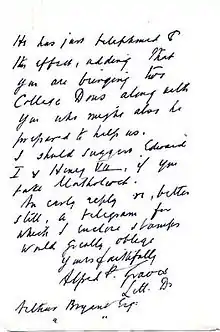 He has just telephoned to
this effect, adding that
you are bringing two
College Dons along with
you who might also be
prepared to help us.
I should suggest Edward
I & Henry VII, if you
take
An early reply or, better
still, a telegram for
which I enclose stamps
would greatly oblige
Yours faithfully
Alfred P. Graves
Litt. D.
Arthur Bryant Esq.